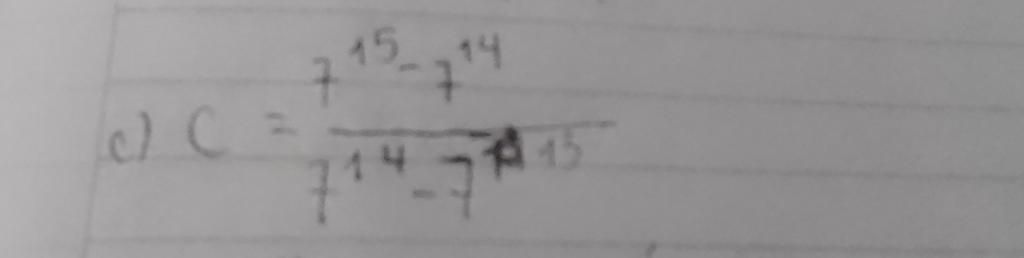 c) C = \frac{7^{15} - 7^{14}}{7^{14} - 7^{15}}